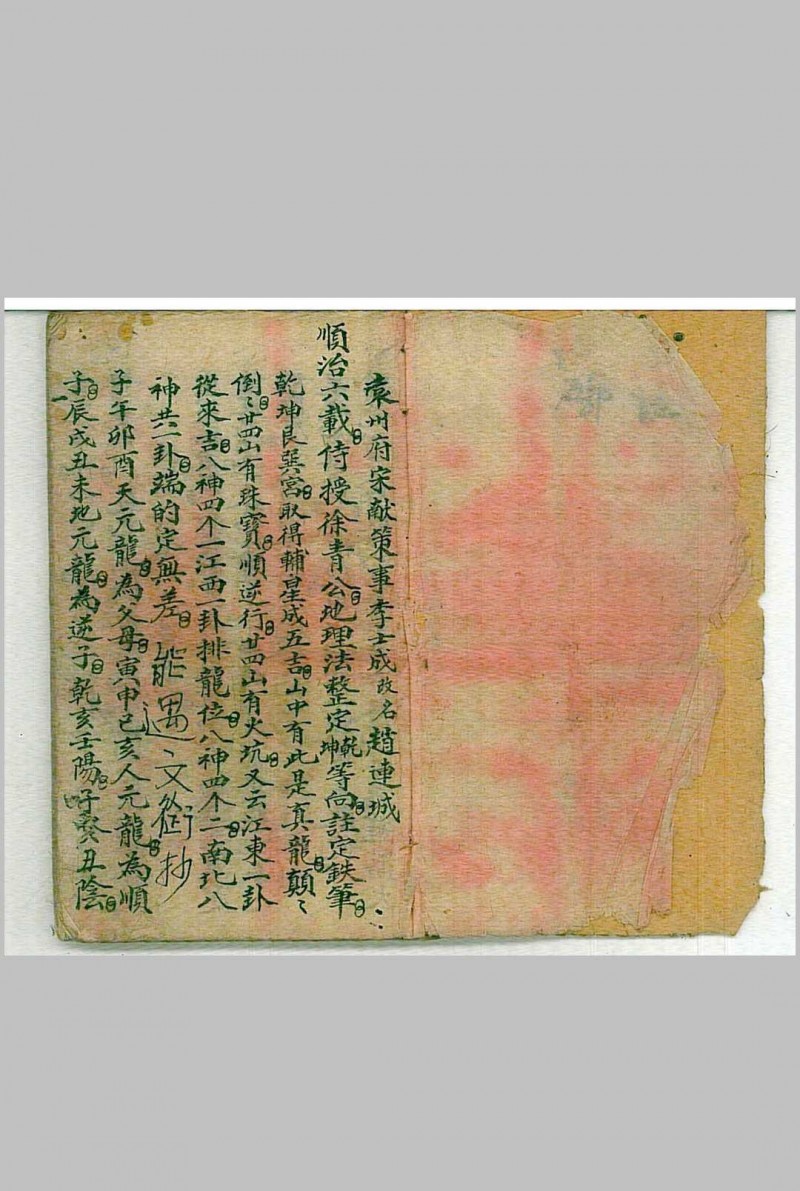 袁州府宋献策事李士成改名趙連城
順治六載侍授徐青公地理法整定乾坤等向註定鉄筆
乾坤艮巽宮取得輔星成五吉山中有此是真龍顛〻
倒〻廿四山有珠寶順逆行廿四山有火坑又云江東一卦
從來吉八神四个一江西一卦排龍位八神四个二南北八
神共一卦端的定無差
文衡抄
子午卯酉天元龍為父母寅申巳亥人元龍為順
子辰戌丑未地元龍為逆子乾亥壬陽子癸丑陰